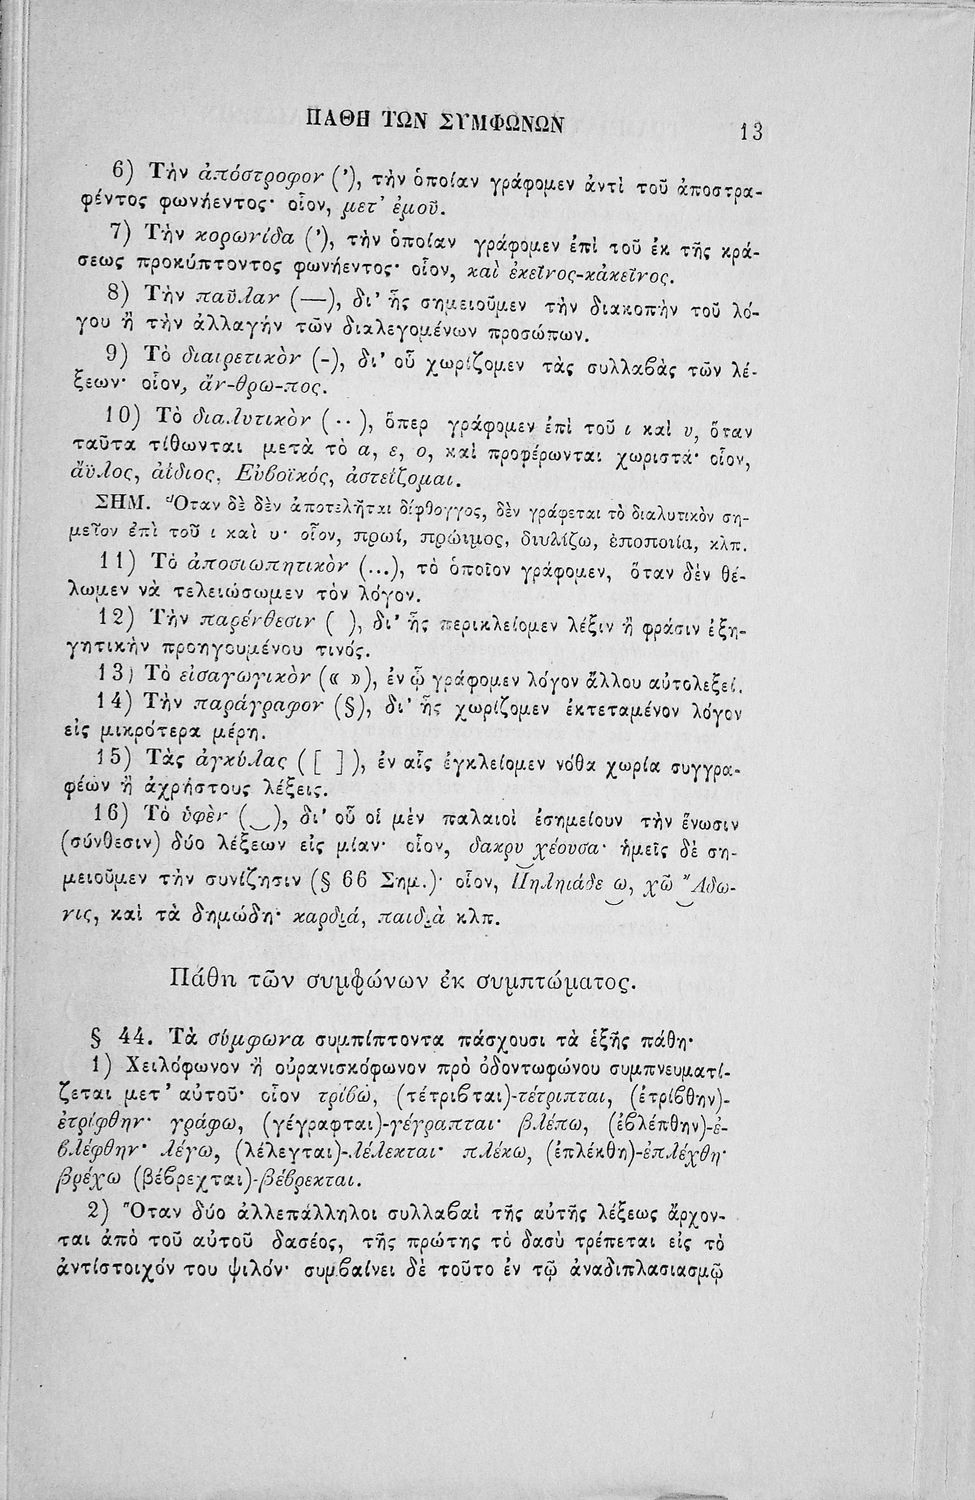 ΠΑΘΗ ΤΩΝ ΣΥΜΦΩΝΩΝ 13
6) Τὴν ἀπόστροφον (’), τὴν ὁποίαν γράφομεν ἀντὶ τοῦ ἀποστρα-
φέντος φωνήεντος· οἷον, μετ’ ἐμοῦ.
7) Τὴν κορωνίδα (’), τὴν ὁποίαν γράφομεν ἐπὶ τοῦ ἐκ τῆς κρά-
σεως προκύπτοντος φωνήεντος· οἷον, καὶ ἐκεῖνος-κἀκεῖνος.
8) Τὴν παῦλαν (—), δι’ ἧς σημειοῦμεν τὴν διακοπὴν τοῦ λό-
γου ἢ τὴν ἀλλαγὴν τῶν διαλεγομένων προσώπων.
9) Τὸ διαιρετικὸν (-), δι’ οὗ χωρίζομεν τὰς συλλαβὰς τῶν λέ-
ξεων· οἷον, ἄν-θρω-πος.
10) Τὸ διαλυτικὸν (··), ὅπερ γράφομεν ἐπὶ τοῦ ι καὶ υ, ὅταν
ταῦτα τίθωνται μετὰ τὸ α, ε, ο, καὶ προφέρωνται χωριστά· οἷον,
ἄϋλος, ἀΐδιος, Εὐβοϊκός, ἀστεΐζομαι.
ΣΗΜ. Ὅταν δὲ δὲν ἀποτελῆται δίφθογγος, δὲν γράφεται τὸ διαλυτικὸν ση-
μεῖον ἐπὶ τοῦ ι καὶ υ· οἷον, πρωί, πρώιμος, διυλίζω, ἐποποιία, κλπ.
11) Τὸ ἀποσιωπητικὸν (...), τὸ ὁποῖον γράφομεν, ὅταν δὲν θέ-
λωμεν νὰ τελειώσωμεν τὸν λόγον.
12) Τὴν παρένθεσιν ( ), δι’ ἧς περικλείομεν λέξιν ἢ φράσιν ἐξη-
γητικὴν προηγουμένου τινός.
13) Τὸ εἰσαγωγικὸν (« »), ἐν ᾧ γράφομεν λόγον ἄλλου αὐτολεξεί.
14) Τὴν παράγραφον (§), δι’ ἧς χωρίζομεν ἐκτεταμένον λόγον
εἰς μικρότερα μέρη.
15) Τὰς ἀγκύλας ([ ]), ἐν αἷς ἐγκλείομεν νόθα χωρία συγγρα-
φέων ἢ ἀχρήστους λέξεις.
16) Τὸ ὑφὲν (‿), δι’ οὗ οἱ μὲν παλαιοὶ ἐσημείουν τὴν ἕνωσιν
(σύνθεσιν) δύο λέξεων εἰς μίαν· οἷον, δακρυ‿χέουσα· ἡμεῖς δὲ ση-
μειοῦμεν τὴν συνίζησιν (§ 66 Σημ.)· οἷον, Πηληιάδε‿ω, χῶ‿Ἄδω-
νις, καὶ τὰ δημώδη· καρδιά, παιδιὰ κλπ.
Πάθη τῶν συμφώνων ἐκ συμπτώματος.
§ 44. Τὰ σύμφωνα συμπίπτοντα πάσχουσι τὰ ἑξῆς πάθη·
1) Χειλόφωνον ἢ οὐρανισκόφωνον πρὸ ὀδοντωφώνου συμπνευματί-
ζεται μετ’ αὐτοῦ· οἷον τρίβω, (τέτριβται)-τέτριπται, (ἐτρίβθην)-
ἐτρίφθην· γράφω, (γέγραφται)-γέγραπται· βλέπω, (ἐβλέπθην)-ἐ-
βλέφθην· λέγω, (λέλεγται)-λέλεκται· πλέκω, (ἐπλέκθη)-ἐπλέχθη·
βρέχω (βέβρεχται)-βέβρεκται.
2) Ὅταν δύο ἀλλεπάλληλοι συλλαβαὶ τῆς αὐτῆς λέξεως ἄρχον-
ται ἀπὸ τοῦ αὐτοῦ δασέος, τῆς πρώτης τὸ δασὺ τρέπεται εἰς τὸ
ἀντίστοιχόν του ψιλόν· συμβαίνει δὲ τοῦτο ἐν τῷ ἀναδιπλασιασμῷ